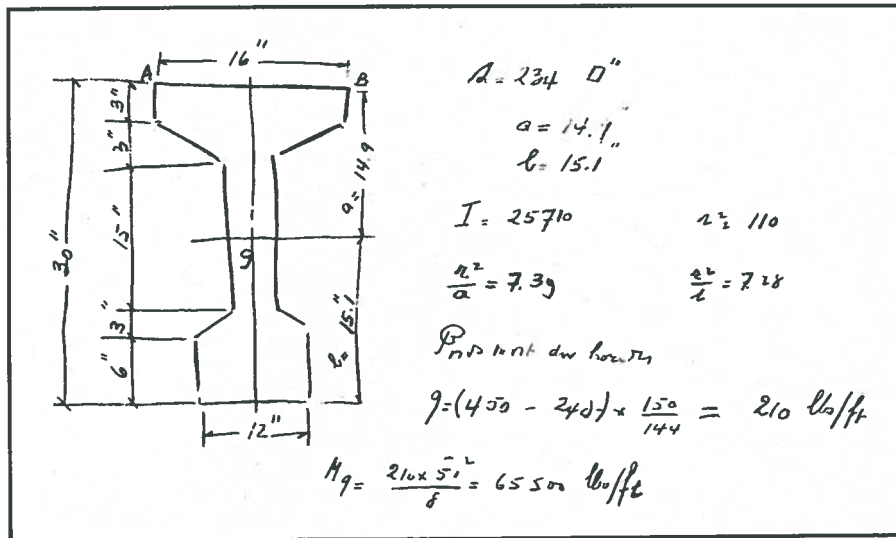 16"
A B
3"
3"
15"
3"
6"
30"
a = 14.9
g
b = 15.1"
12"
A = 234 □"
a = 14.9"
b = 15.1"
I = 25710 r² = 110
r²/a = 7.39 r²/b = 7.28
g = (450 - 240) × 150/144 = 210 lbs/ft
Mg = 210 × 51²/8 = 65 500 lbs/ft